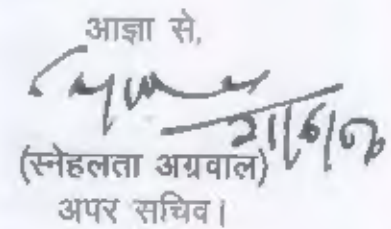 आज्ञा से,
21/6/06
(स्नेहलता अग्रवाल)
अपर सचिव।